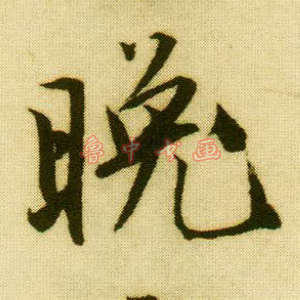 晚
鲁中书画